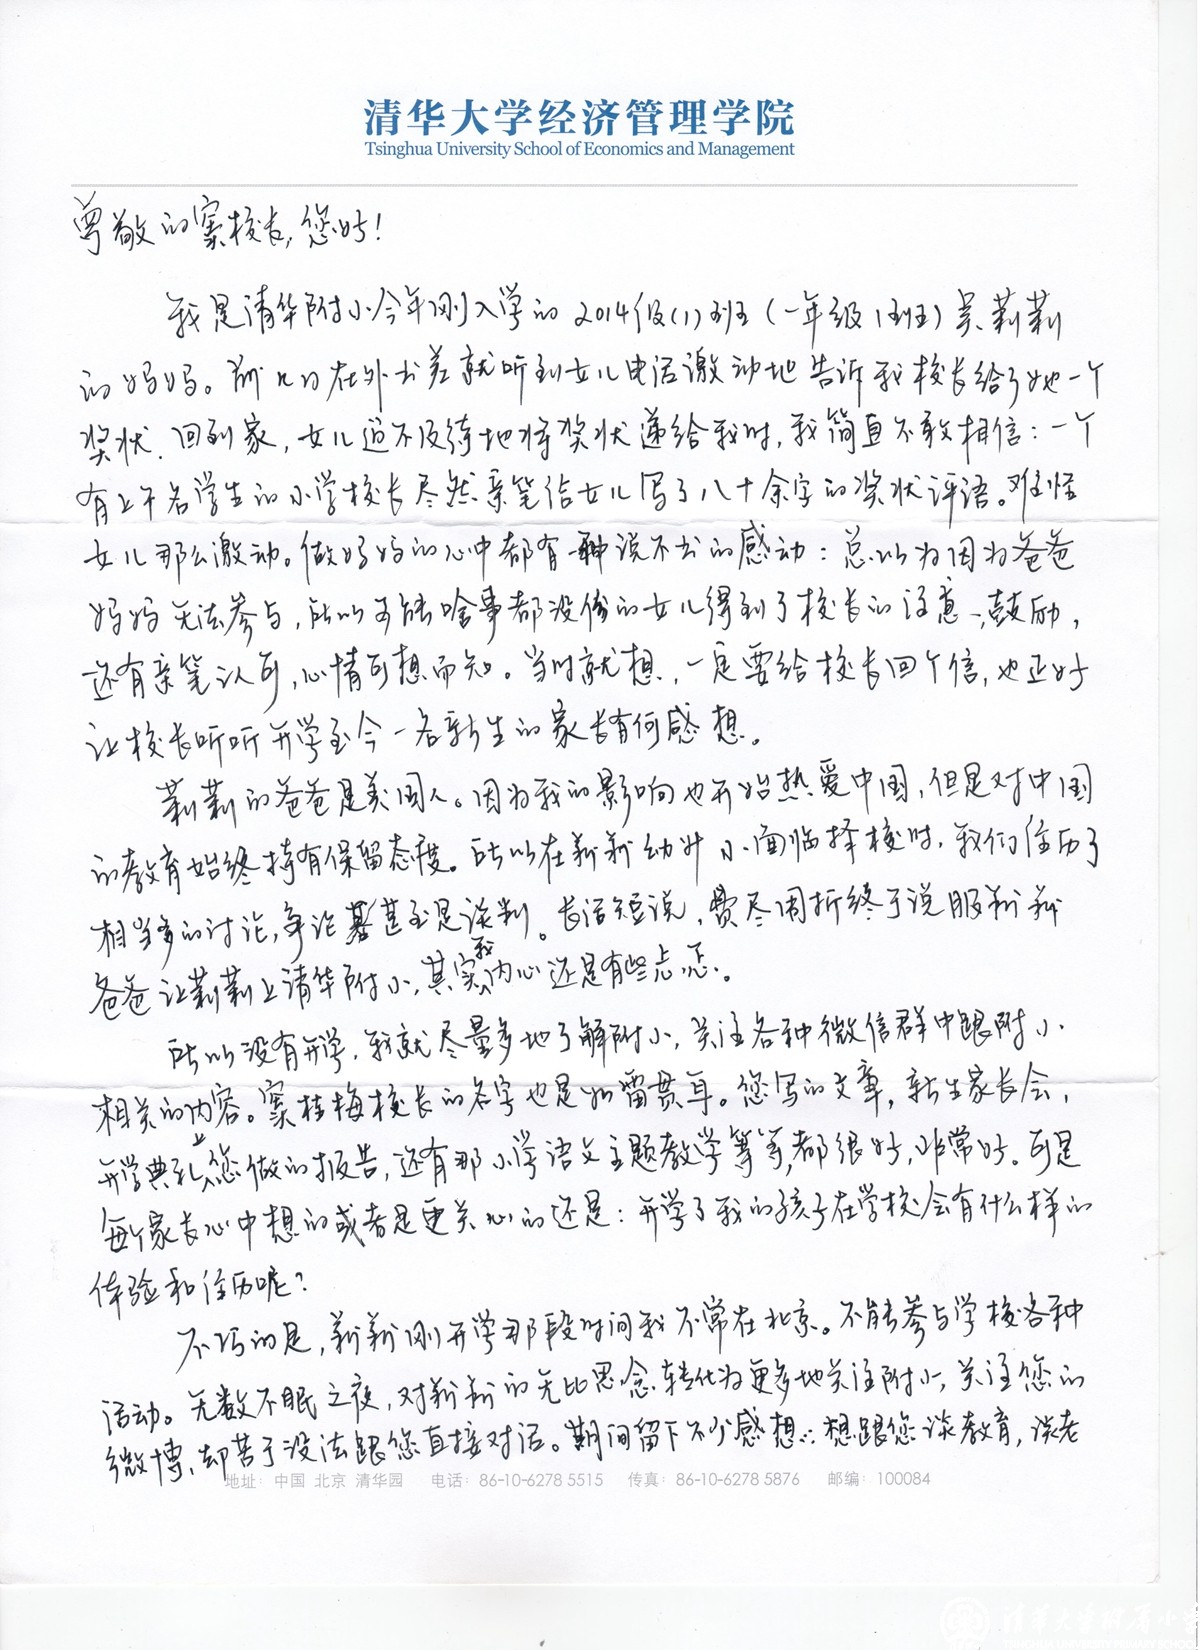 清华大学经济管理学院
Tsinghua University School of Economics and Management
尊敬的窦校长,您好!
我是清华附小今年刚入学的2014级(1)班(一年级1班)吴莉莉
的妈妈。前几日在外出差就听到女儿电话激动地告诉我校长给了她一个
奖状.回到家,女儿迫不及待地将奖状递给我时,我简直不敢相信:一个
有上千名学生的小学校长尽然亲笔给女儿写了八十余字的奖状评语。难怪
女儿那么激动。做妈妈的心中都有一种说不出的感动:总以为因为爸爸
妈妈无法参与,所以可能啥事都没份的女儿得到了校长的注意、鼓励,
还有亲笔认可,心情可想而知。当时就想,一定要给校长回个信,也正好
让校长听听开学至今一名新生的家长有何感想。
莉莉的爸爸是美国人。因为我的影响也开始热爱中国,但是对中国
的教育始终持有保留态度。所以在莉莉幼升小面临择校时,我们经历了
相当多的讨论,争论甚至是谈判。长话短说,费尽周折终于说服莉莉
爸爸让莉莉上清华附小,其实我内心还是有些忐忑。
所以没有开学,我就尽量多地了解附小,关注各种微信群中跟附小
相关的内容。窦桂梅校长的名字也是如雷贯耳。您写的文章,新生家长会,
开学典礼上您做的报告,还有那小学语文主题教学等等,都很好,非常好。可是
每个家长心中想的或者是更关心的还是:开学了我的孩子在学校会有什么样的
体验和经历呢?
不巧的是,莉莉刚开学那段时间我不常在北京。不能参与学校各种
活动。无数不眠之夜,对莉莉的无比思念转化为更多地关注附小,关注您的
微博,却苦于没法跟您直接对话。期间留下不少感想:想跟您谈教育,谈老
地址: 中国 北京 清华园 电话: 86-10-6278 5515 传真: 86-10-6278 5876 邮编: 100084
清华大学附属小学
TSINGHUA UNIVERSITY PRIMARY SCHOOL